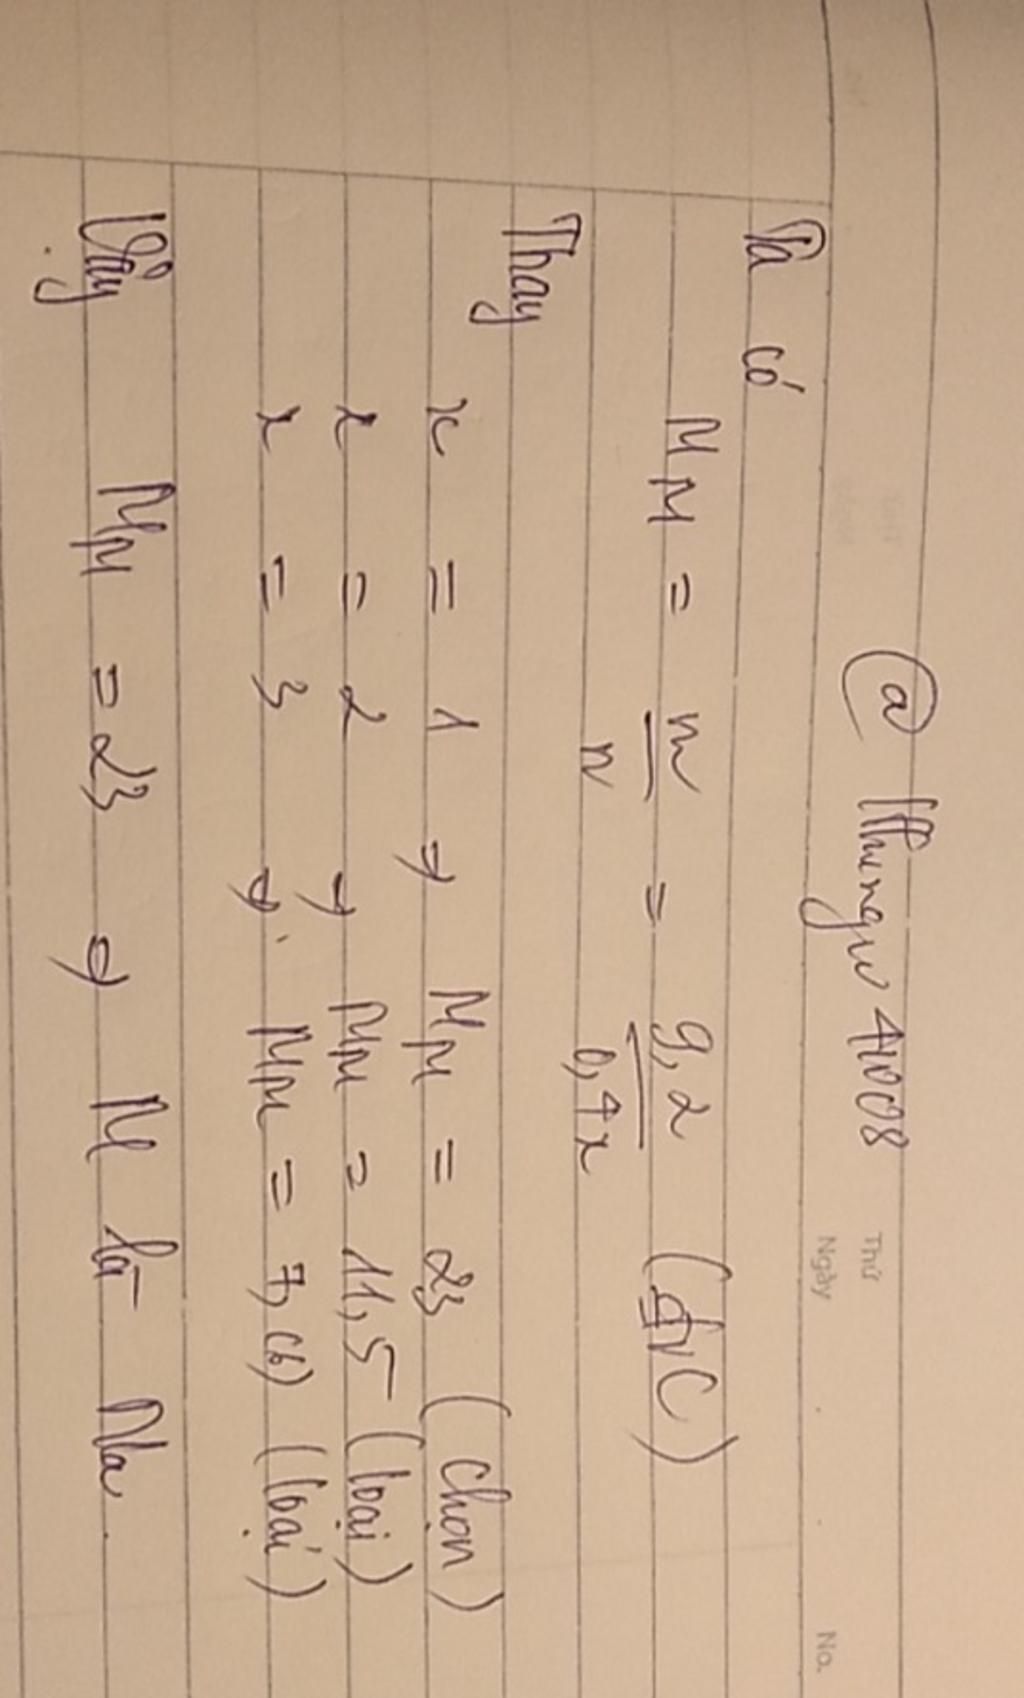 Thứ
Ngày
No.
Ta có
M_M = m/n = 9,2/0,4x (đvC)
Thay
x = 1 ⇒ M_M = 23 (chọn)
x = 2 ⇒ M_M = 11,5 (loại)
x = 3 ⇒ M_M = 7,(6) (loại)
Vậy M_M = 23 ⇒ M là Na.